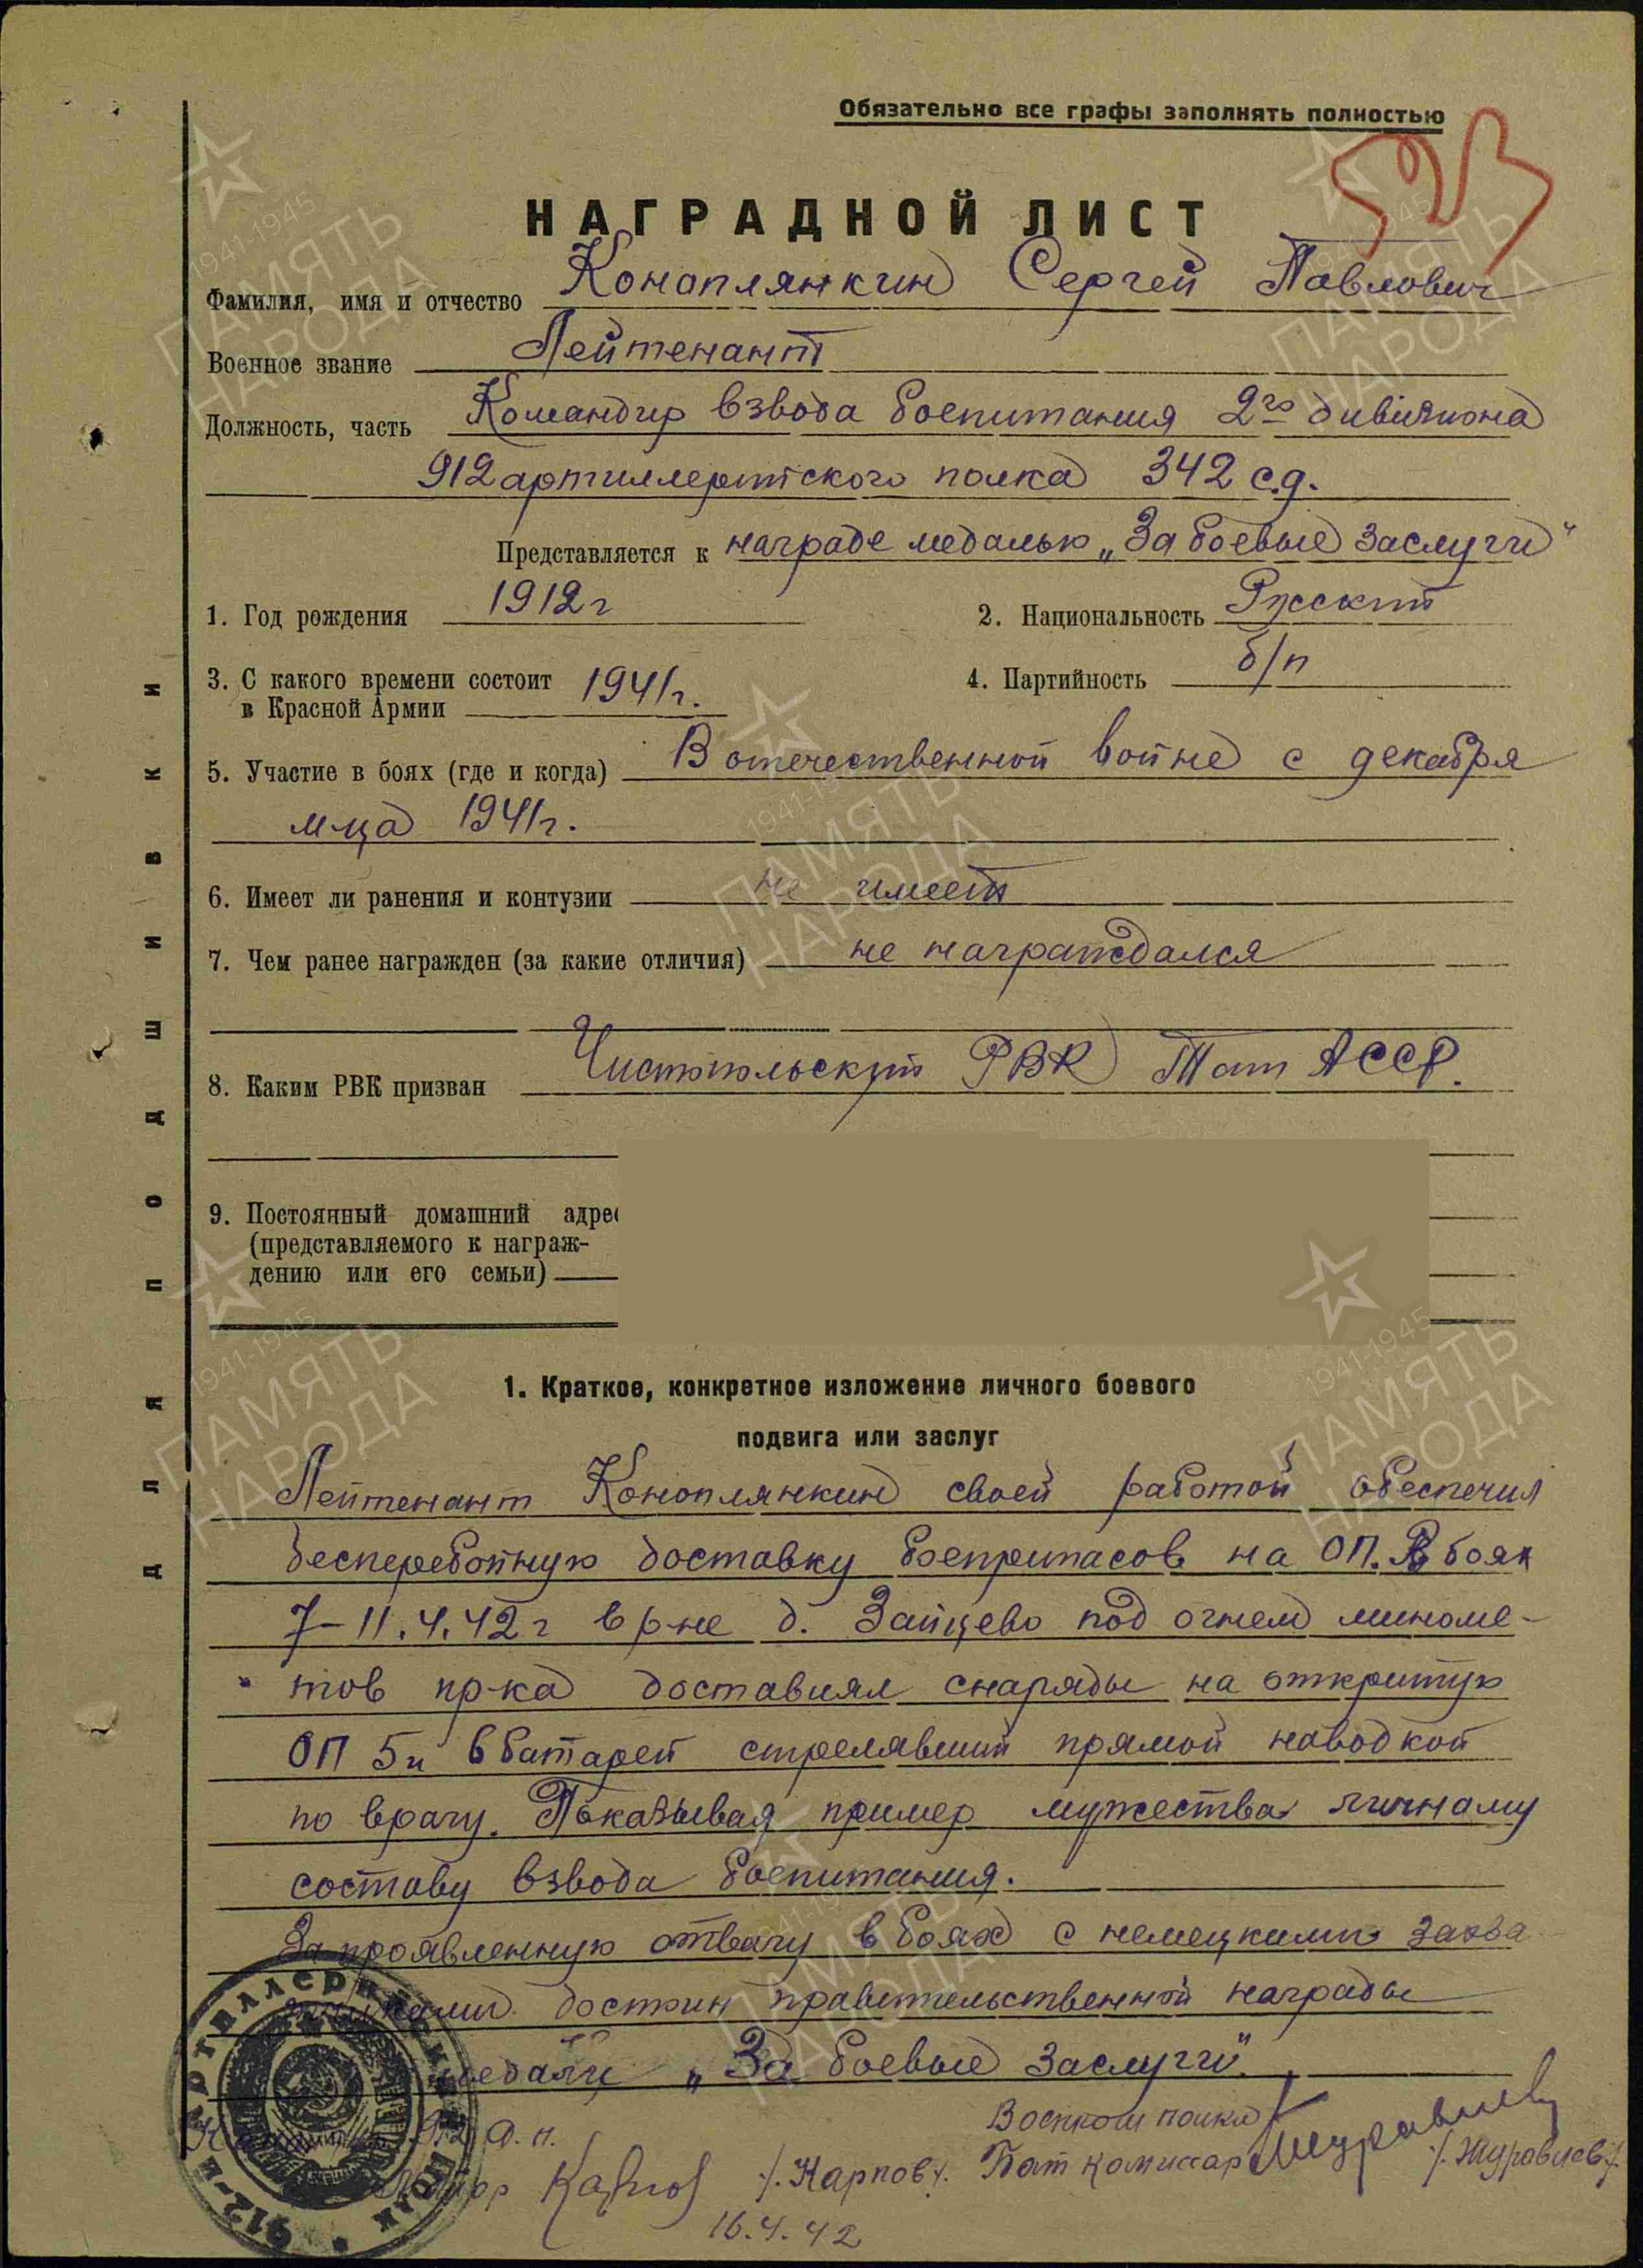 Обязательно все графы заполнять полностью
НАГРАДНОЙ ЛИСТ
Фамилия, имя и отчество Коноплянкин Сергей Павлович
Военное звание Лейтенант
Должность, часть Командир взвода боепитания 2го дивизиона
912 артиллерийского полка 342 с.д.
Представляется к награде медалью „За боевые заслуги"
1. Год рождения 1912г
2. Национальность Русский
3. С какого времени состоит в Красной Армии 1941г.
4. Партийность б/п
5. Участие в боях (где и когда) В отечественной войне с декабря
м-ца 1941г.
6. Имеет ли ранения и контузии не имеет
7. Чем ранее награжден (за какие отличия) не награждался
8. Каким РВК призван Чистопольский РВК Тат АССР.
9. Постоянный домашний адрес
(представляемого к награж-
дению или его семьи)
1. Краткое, конкретное изложение личного боевого
подвига или заслуг
Лейтенант Коноплянкин своей работой обеспечил
бесперебойную доставку боеприпасов на ОП. В боях
7-11.4.42г в р-не д. Зайцево под огнем миноме-
тов пр-ка доставлял снаряды на открытую
ОП 5 и 6 батарей стрелявший прямой наводкой
по врагу. Показывая пример мужества личному
составу взвода боепитания.
За проявленную отвагу в боях с немецкими захва
достоин правительственной награды
медали „За боевые заслуги".
912 а.п.
Майор Карпов /Карпов/.
Военком полка
Бат комиссар Журавлев /Журавлев/.
16.4.42
ДЛЯ ПОДШИВКИ
912-й АРТИЛЛЕРИЙСКИЙ ПОЛК
1941-1945
ПАМЯТЬ
НАРОДА
1941-1945
ПАМЯТЬ
НАРОДА
1941-1945
ПАМЯТЬ
НАРОДА
1941-1945
ПАМЯТЬ
НАРОДА
1941-1945
ПАМЯТЬ
НАРОДА
1941-1945
ПАМЯТЬ
НАРОДА